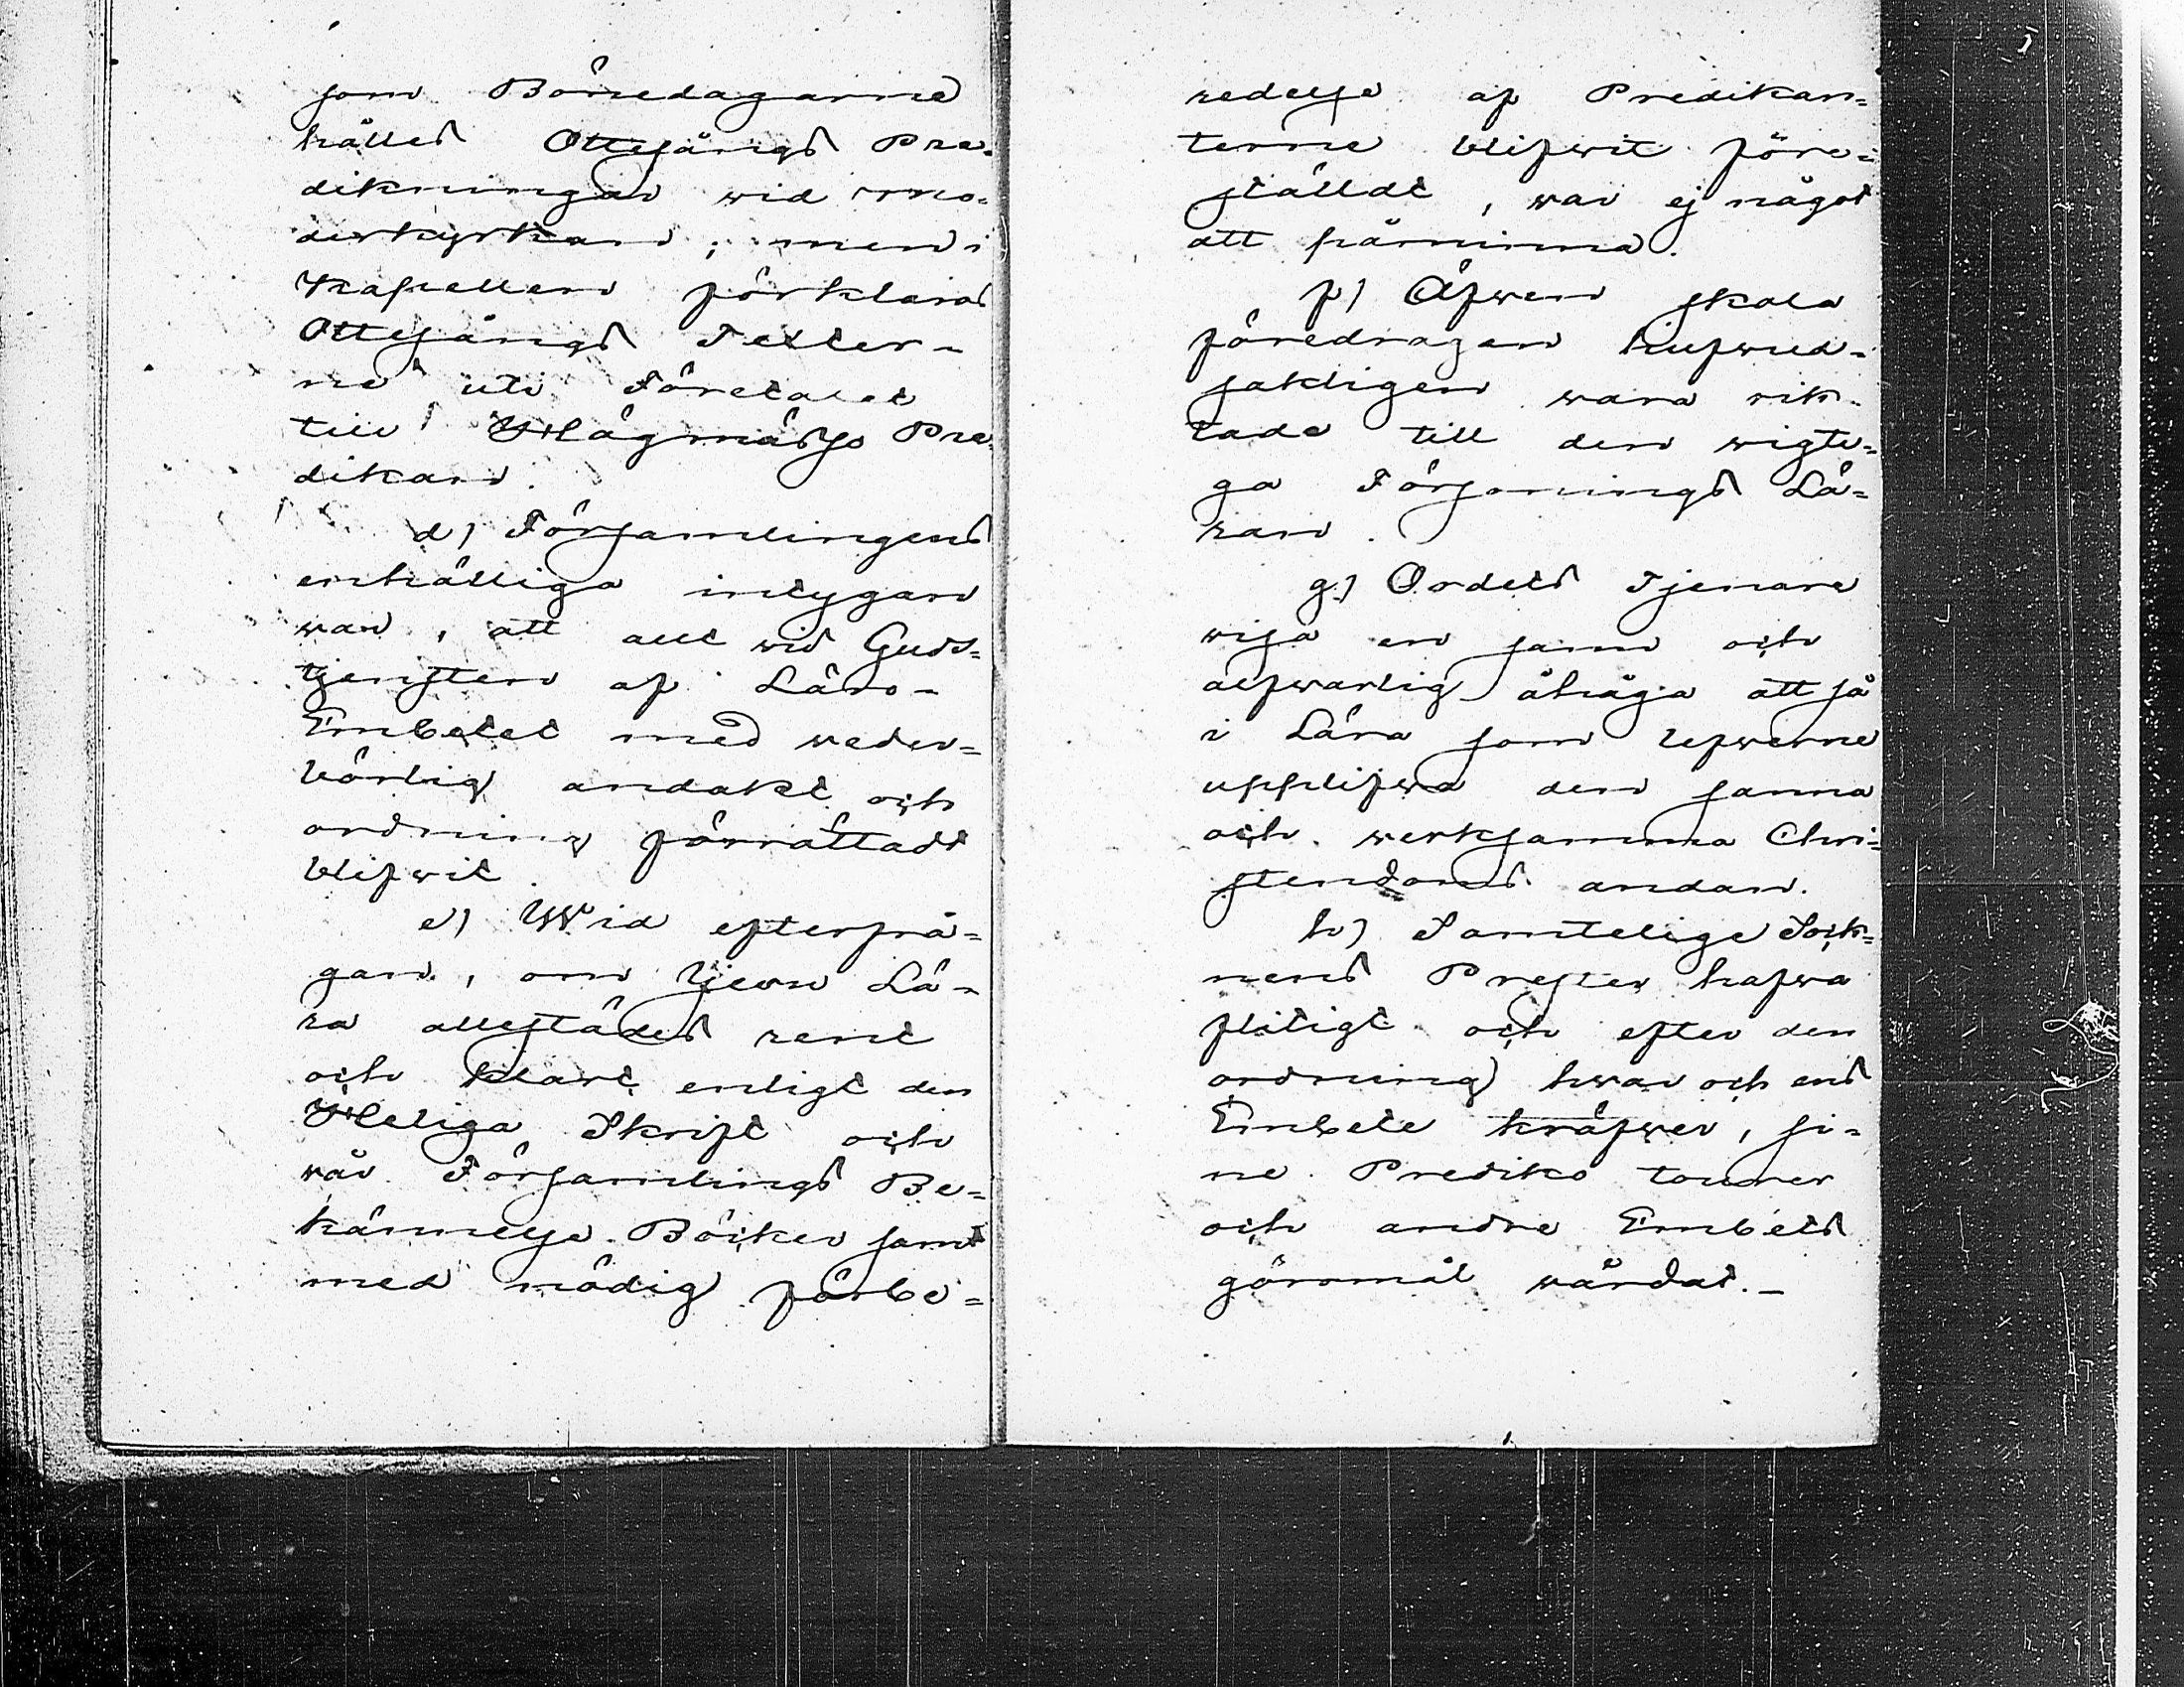 som Bönedagarne
hålles Ottesångs Pre-
dikningar wid Mo-
derkyrkan; men i
Kapellen förklaras
Ottesångs Texter-
ne uti Företalet
till Högmässo Pre-
dikan.
d) Församlingens
enhälliga intygan
war, att allt wid Guds-
tjensten af Läro-
Embetet med weder-
börlig andakt och
ordning förrättadt
blifwit.
e) Wid efterfrå-
gan, om Lä-
ra allestädes rent
och klart enligt den
Heliga Skrift och
wår Församlings Be-
kännelse Böcker samt
med nödig förbe-
redelse af Predikan-
terne blifwit före-
ställdt, war ej något
att påminna.
f) Äfwen skola
föredragen hufwud-
sakligen wara rik-
tade till den wigti-
ga Försonings Lä-
ran.
g) Ordets Tjenare
wisa en sann och
alfwarlig åhåga att så
i Lära som Lefwerne
upplifwa den sanna
och werksamma Chri-
stendoms andan.
h) Samtelige Sock-
nens Prester hafwa
flitigt och efter den
ordning hwar och ens
Embete kräfwer, si-
ne Prediko tourer
och andre Embets
göromål wårdat.-